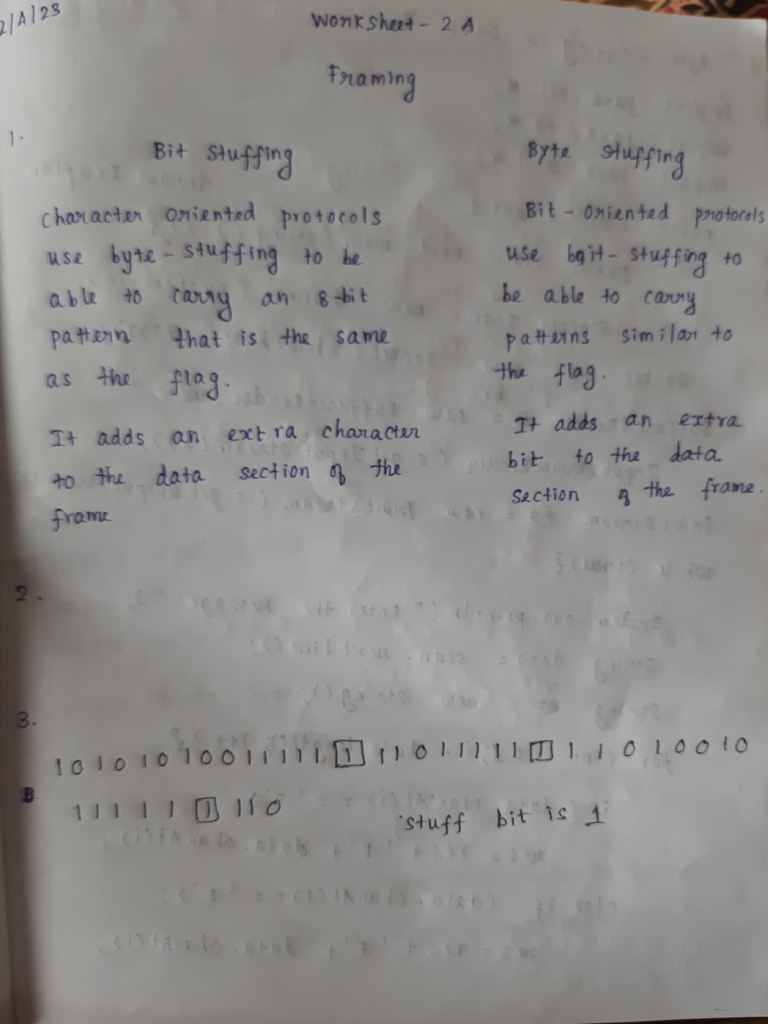 2/A/23
Worksheet - 2 A
Framing
1.
Bit Stuffing
character oriented protocols
use byte - stuffing to be
able to carry an 8-bit
pattern that is the same
as the flag.
It adds an extra character
to the data section of the
frame
Byte stuffing
Bit - oriented protocols
use bit - stuffing to
be able to carry
patterns similar to
the flag.
It adds an extra
bit to the data
section of the frame.
2.
3.
1010101001111111101111111101001 0
1 1 1 1 1 1 1 1 0 stuff bit is 1